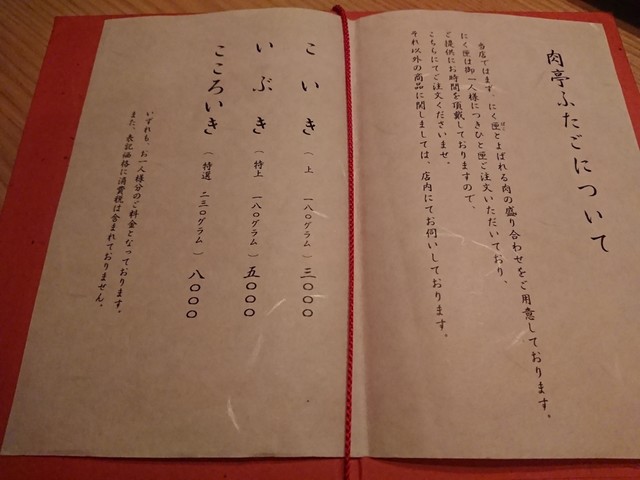 肉亭ふたごについて
当店ではまず、にく匣とよばれる肉の盛り合わせをご用意しております。
げた
にく匣は御一人様につきひと匣ご注文いただいており、
ご提供にお時間を頂戴しておりますので、
こちらにてご注文くださいませ。
それ以外の商品に関しましては、店内にてお伺いしております。
こいき（上 一八〇グラム）三〇〇〇
いぶき（特上 一八〇グラム）五〇〇〇
こころいき（特選 二三〇グラム）八〇〇〇
いずれも、お一人様分のご料金となっております。
また、表記価格に消費税は含まれておりません。